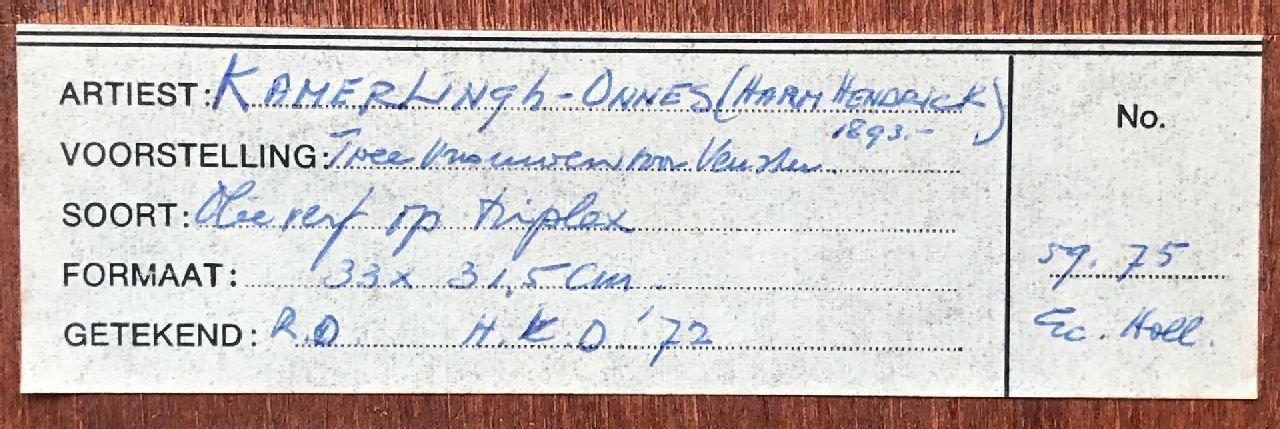 ARTIEST: KAMERLINGh-ONNES (HARM HENDRICK)
1893.-
VOORSTELLING: Twee Vrouwen voor Venster.
SOORT: Olieverf op triplex
FORMAAT: 33 x 31,5 Cm.
GETEKEND: R.O. H.K.O. '72
No.
59. 75
Ec. Holl.